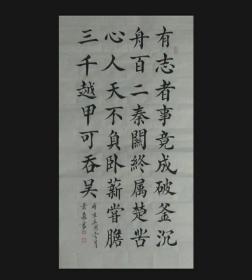 有志者事竟成破釜沉
舟百二秦關終属楚苦
心人天不負卧薪嘗膽
三千越甲可吞吴